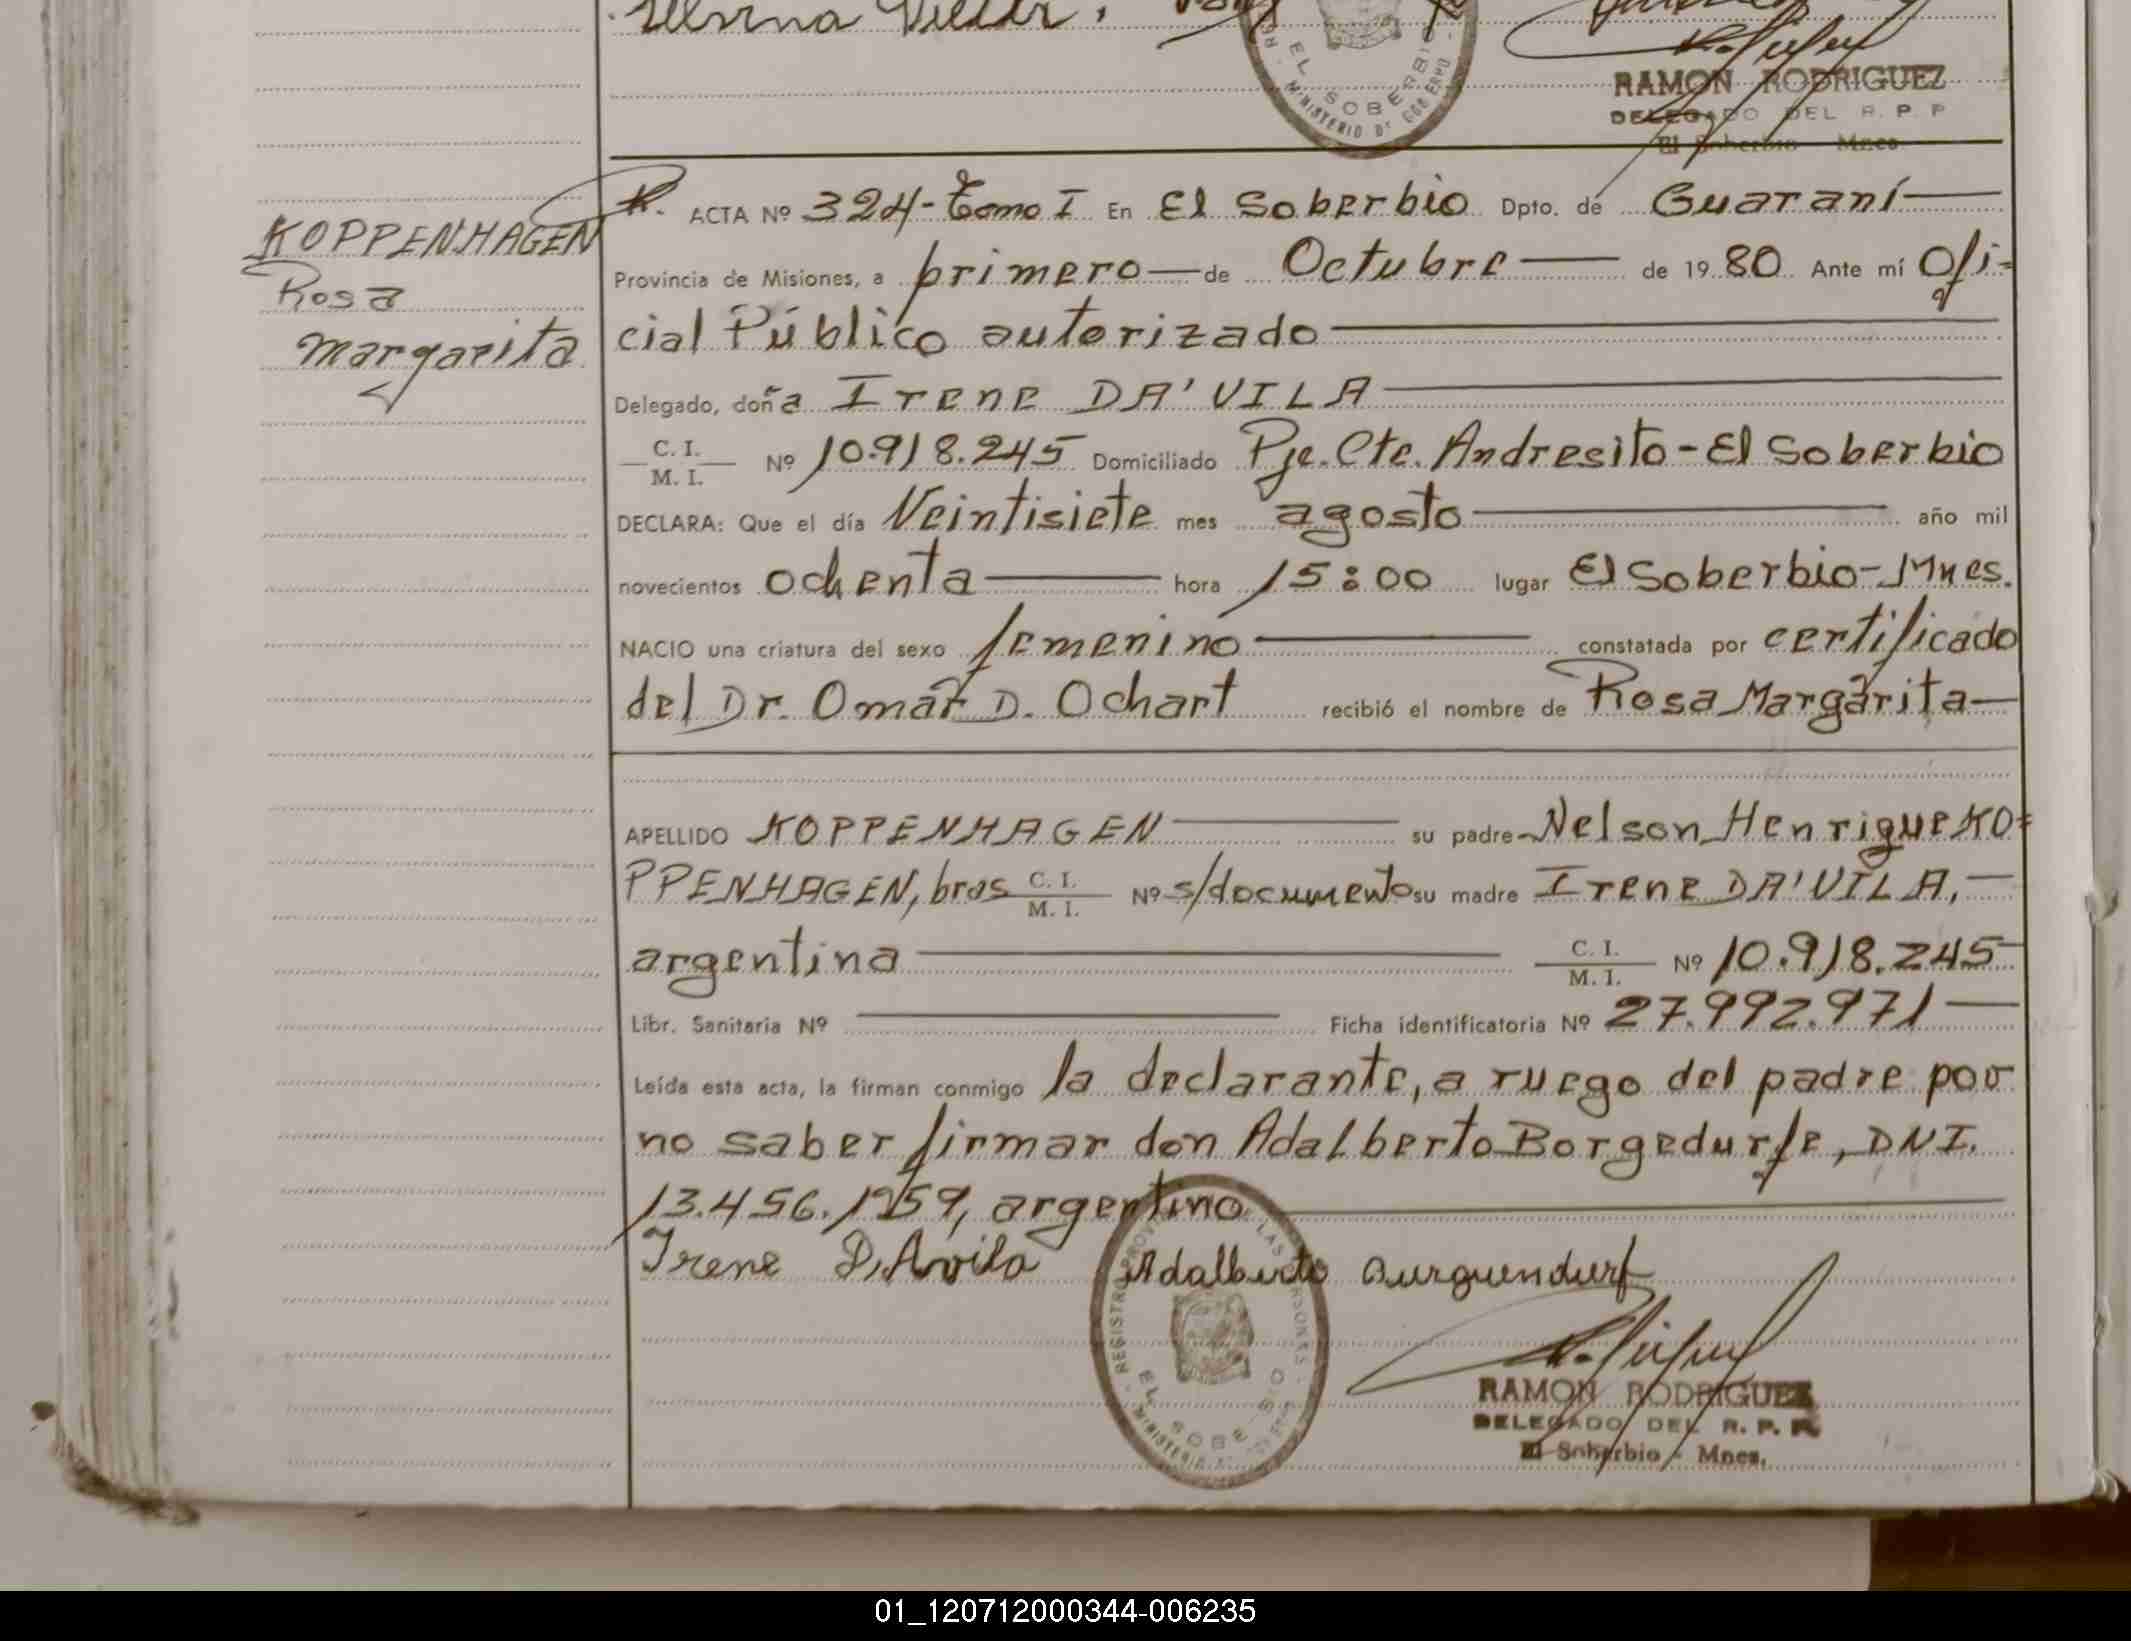 RAMON RODRIGUEZ
DELEGADO DEL R. P. P
El Soberbio - Mnes.
EL SOBERBIO
MINISTERIO DE GOBIERNO
KOPPENHAGEN
Rosa
Margarita
ACTA Nº 324-Tomo I En El Soberbio Dpto. de Guaraní
Provincia de Misiones, a primero de Octubre de 1980 Ante mí Ofi-
cial Público autorizado
Delegado, doña Irene DA'VILA
C. I.
M. I. Nº 10.918.245 Domiciliado Pje. Cte. Andresito - El Soberbio
DECLARA: Que el día Veintisiete mes agosto año mil
novecientos ochenta hora 15:00 lugar El Soberbio-Mnes.
NACIO una criatura del sexo femenino constatada por certificado
del Dr. Omar D. Ochart recibió el nombre de Rosa Margarita
APELLIDO KOPPENHAGEN su padre Nelson Henrique KO=
PPENHAGEN, bras C. I. M. I. Nº s/documento su madre Irene DA'VILA,
argentina C. I. M. I. Nº 10.918.245
Libr. Sanitaria Nº Ficha identificatoria Nº 27.992.971
Leída esta acta, la firman conmigo la declarante, a ruego del padre por
no saber firmar don Adalberto Borgedurfe, DNI.
argentino
Irene D,Avila Adalberto Burguendurf
EL SOBERBIO
RAMON RODRIGUEZ
DELEGADO DEL R. P. P.
El Soberbio - Mnes.
01_120712000344-006235